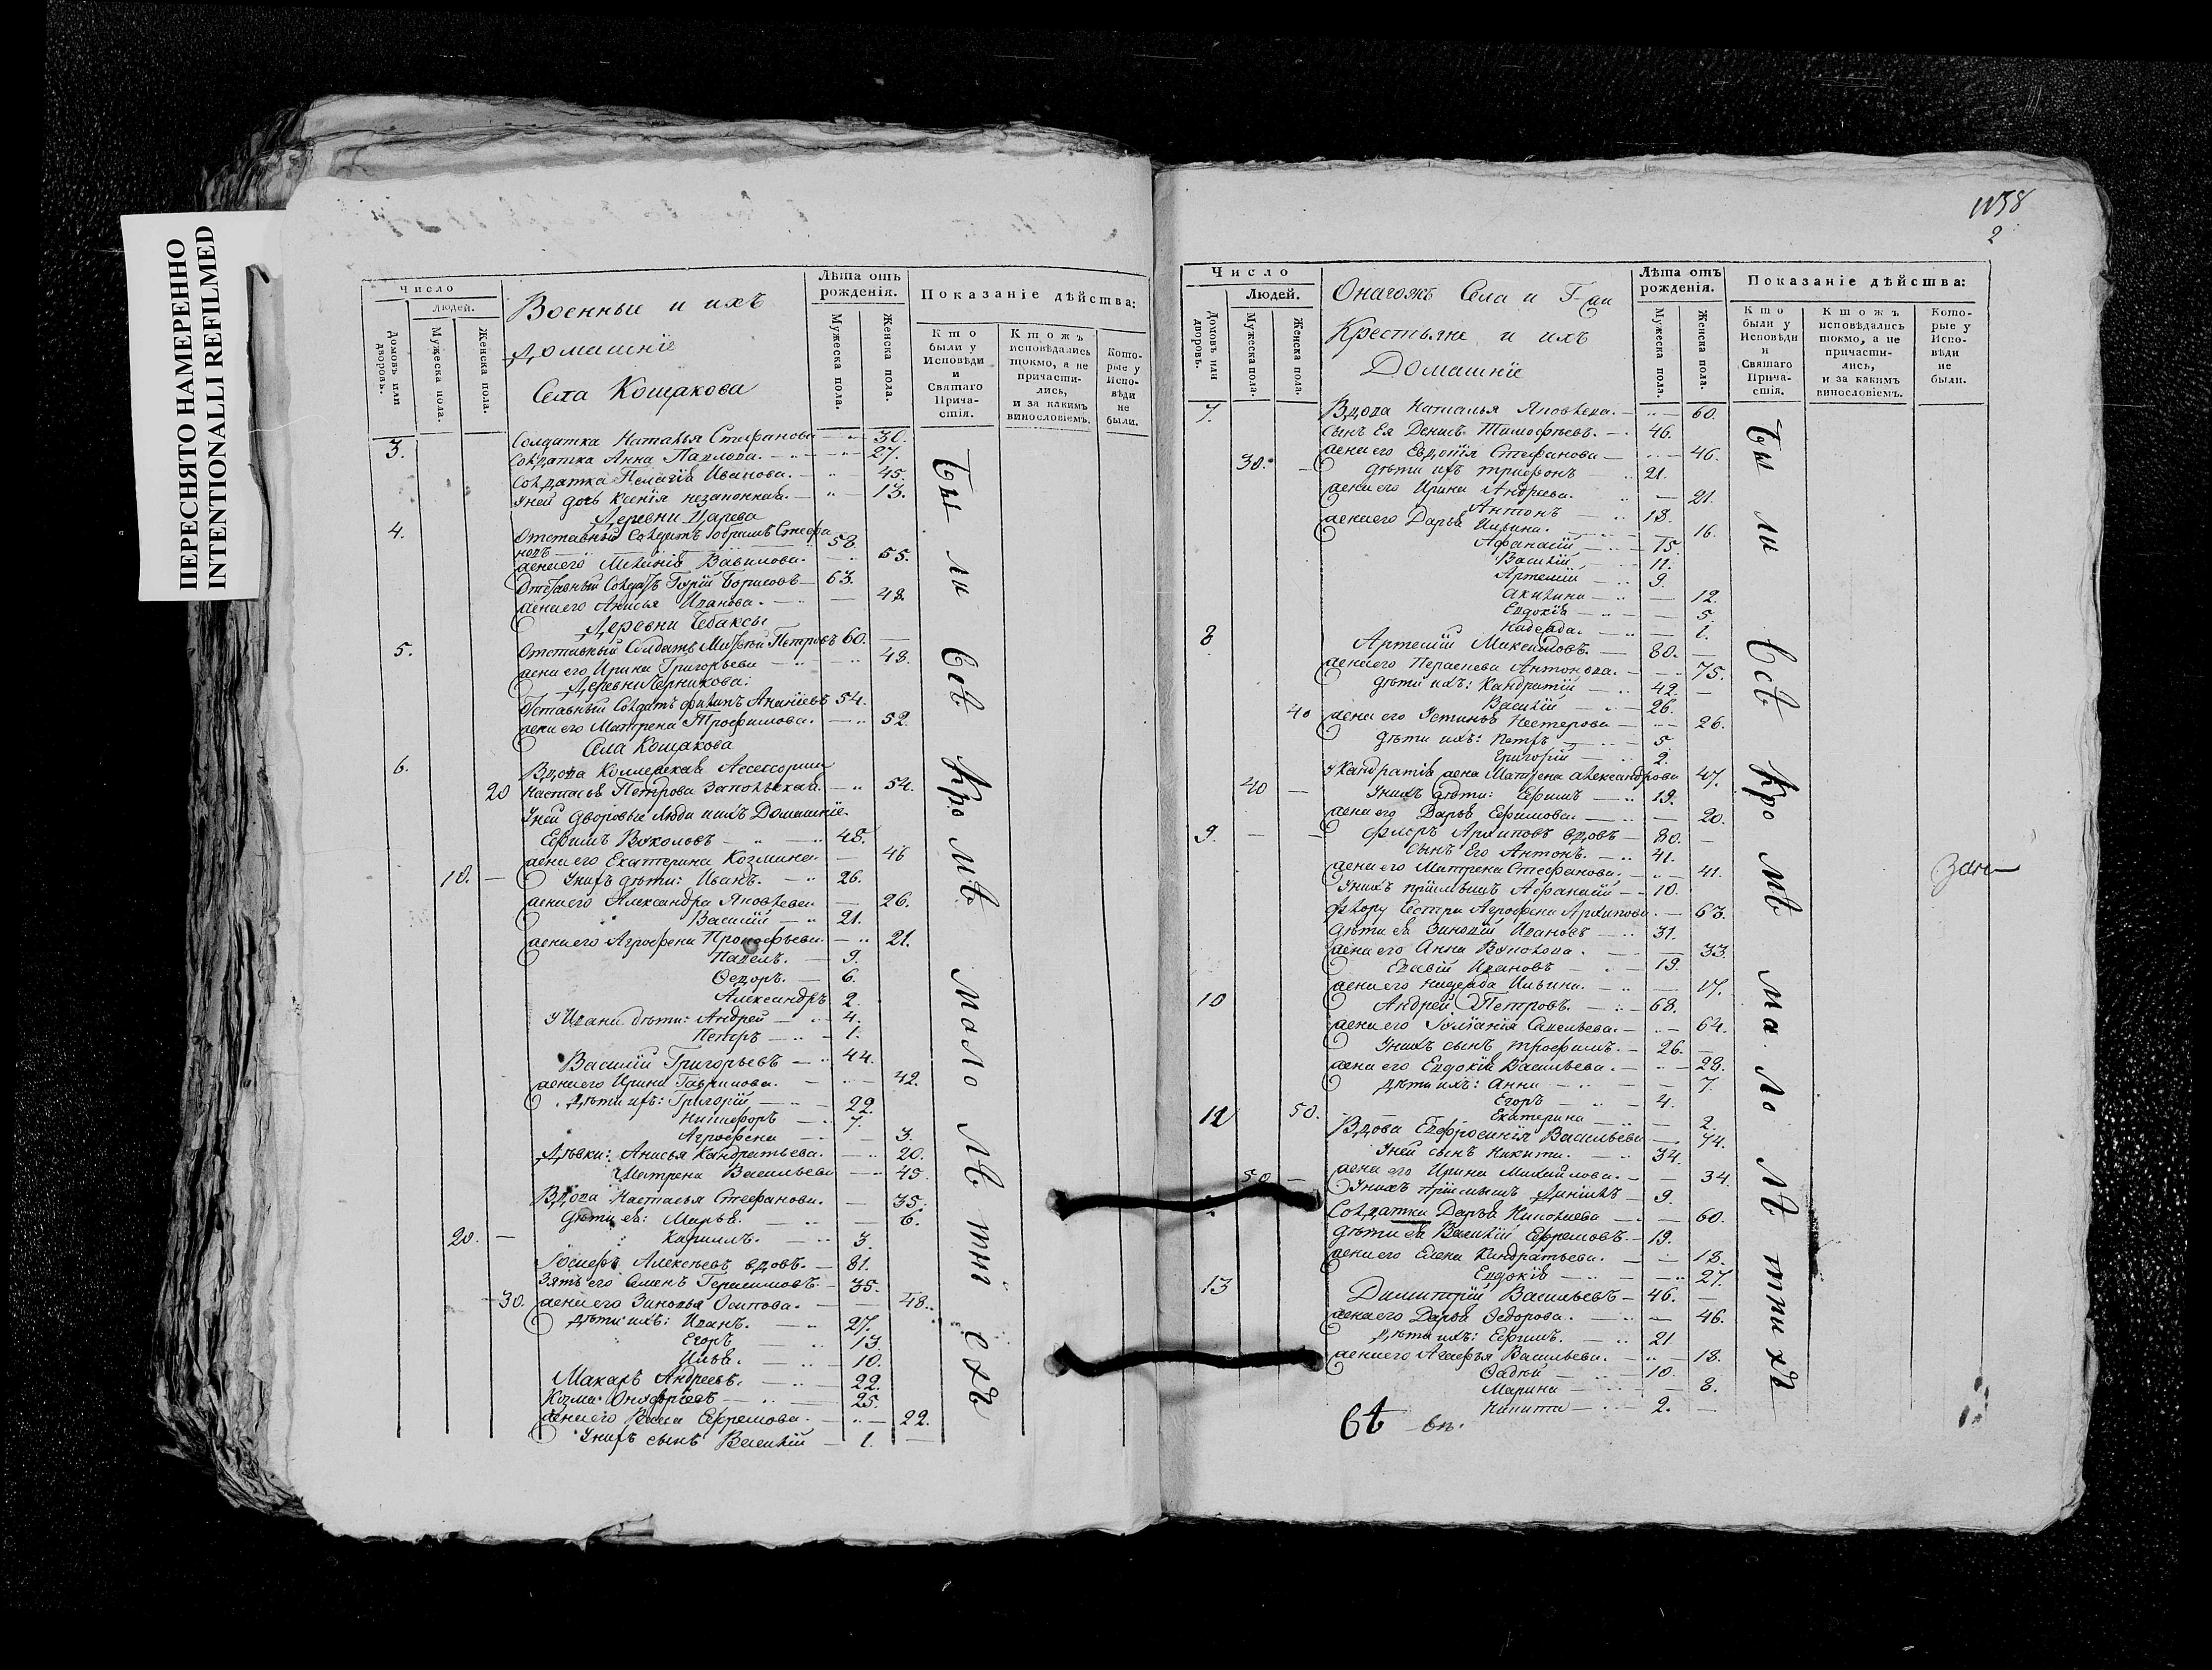 ПЕРЕСНЯТО НАМЕРЕННО
INTENTIONALLI REFILMED
Число
Людей.
Домовъ или дворовъ.
Мужеска пола.
Женска пола.
Военные и ихъ
Домашніе
Села Кощакова
Лѣта отъ рожденія.
Мужеска пола.
Женска пола.
Показаніе дѣйства:
Кто были у Исповѣди и Святаго Причастія.
Ктожъ исповѣдались токмо, а не причастились, и за какимъ винословіемъ.
Которые у Исповѣди не были.
3. Солдатка Наталья Стефанова 30.
Солдатка Анна Павлова. 27.
Солдатка Пелагія Иванова. 45.
Уней дочь Ксенія незаконная. 13.
Деревни Царева
4. Отставный Солдатъ Стефа
новъ 58.
жена его Вавилова. 55.
Отставный Солдатъ Гурій Борисовъ 63.
жена его Анисья Иванова. 48.
Деревни Чебаксы
5. Отставный Солдатъ Петровъ 60.
жена его Ирина Григорьева 48.
Деревни Черникова:
Отставный Солдатъ Филипъ Ананіевъ 54.
жена его Матрена Трофимова. 52.
Села Кощакова
6. Вдова Коллежская Ассесорша
20 Настасья Петрова 54.
Уней дворовые люди и ихъ Домашніе.
Ефимъ Вуколовъ 48.
жена его Екатерина Козмина 46
10. Унихъ дѣти: Иванъ. 26.
жена его Александра Яковлева 26.
Василій 21.
жена его Агрофена Прокофьева. 21.
Павелъ. 9.
Ѳедоръ. 6.
Александръ 2.
У Ивана дѣти: Андрей 4.
Петръ 1.
Василій Григорьевъ 44.
жена его Ирина Гаврилова. 42.
Дѣти ихъ: Григорій 22.
Никифоръ 7.
Агрофена 3.
Дѣвки: Анисья Кандратьева. 20.
Матрена Васильева 45.
Вдова Настасья Стефанова. 35.
Дѣти ея: Марья. 6.
20. Кирилъ. 3.
Іосифъ Алексѣевъ вдовъ. 81.
Зять его Семенъ Герасимовъ. 35.
30. жена его Зиновья Осипова. 48.
Дѣти ихъ: Иванъ. 27.
Егоръ 13.
Илья. 10.
Макаръ Андреевъ. 22.
Козма Онуфріевъ 25.
жена его Ефремова. 22.
Унихъ сынъ Василій 1.
Бы ли всѣ кромѣ малолѣтныхъ
1158
2
Число
Людей.
Домовъ или дворовъ.
Мужеска пола.
Женска пола.
Онагожъ Села и
Крестьяне и ихъ
Домашніе
Лѣта отъ рожденія.
Мужеска пола.
Женска пола.
Показаніе дѣйства:
Кто были у Исповѣди и Святаго Причастія.
Ктожъ исповѣдались токмо, а не причастились, и за какимъ винословіемъ.
Которые у Исповѣди не были.
7. Вдова Наталья Яковлева. 60.
Сынъ Ея Денисъ Тимофѣевъ. 46.
жена его Евдокія Стефанова 46.
30. дѣти ихъ Трифонъ 21.
жена его Ирина Андреева. 21.
Антонъ 18.
жена его Дарья Ильина. 16.
Афанасій 15.
Василій 11.
Артемій 9.
Акилина 12.
Евдокія 5.
Надежда. 1.
8 Артемій Максимовъ. 80.
жена его Парасковья Антонова. 75.
Дѣти ихъ: Кандратій 42.
Василій 26.
40 жена его Устинья Нестерова 26.
Дѣти ихъ: Петръ 5
Григорій 2.
У Кандратія жена Матрена Александрова 47.
40 Унихъ дѣти: Ефимъ 19.
жена его Дарья Ефимова. 20.
9. Флоръ Архиповъ вдовъ 80.
Сынъ Его Антонъ. 41.
жена его Матрена Стефанова. 41.
Унихъ пріимышъ Афанасій 10.
Флору Сестра Агрофена Архипова. 63.
Дѣти ея Зиновій Ивановъ 31.
жена его Анна Вуколова. 33.
Ивановъ 19.
жена его Надежда Ильина. 17.
10 Андрей Петровъ. 68.
жена его Іуліанія Савельева. 64.
Унихъ сынъ Трофимъ. 26.
жена его Евдокія Васильева. 28.
Дѣти ихъ: Анна 7.
Егоръ 4.
50. Екатерина 2.
12 Вдова Евфросинія Васильева 74.
Уней сынъ Никита. 34.
жена его Ирина Михайлова. 34.
50 Унихъ пріимышъ Даніилъ 9.
Солдатка Дарья 60.
Дѣти ея Василій Ефремовъ. 19.
жена его Елена Кандратьева. 18.
Евдокія 27.
13 Димитрій Васильевъ 46.
жена его Дарья Ѳедорова. 46.
Дѣти ихъ: Ефимъ. 21
жена его Агафья Васильева. 18.
Фадѣй 10.
Марина 8.
Никита 2.
Бы ли всѣ кромѣ малолѣтнихъ